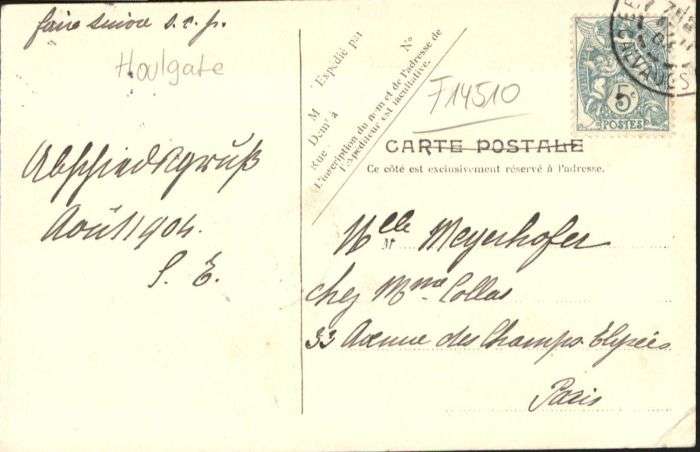 faire suivre s.v.p.
Houlgate
Abschiedsgruß
Août 1904.
S. E.
M Expédié par
Demt à
Rue No
L'inscription du nom et de l'adresse de
l'Expéditeur est facultative.
F14510
CALVADOS
5c
POSTES
CARTE POSTALE
Ce côté est exclusivement réservé à l'adresse.
M
Mlle Meyerhofer
chez Mme Collas
33 Avenue des Champs Elysées
Paris